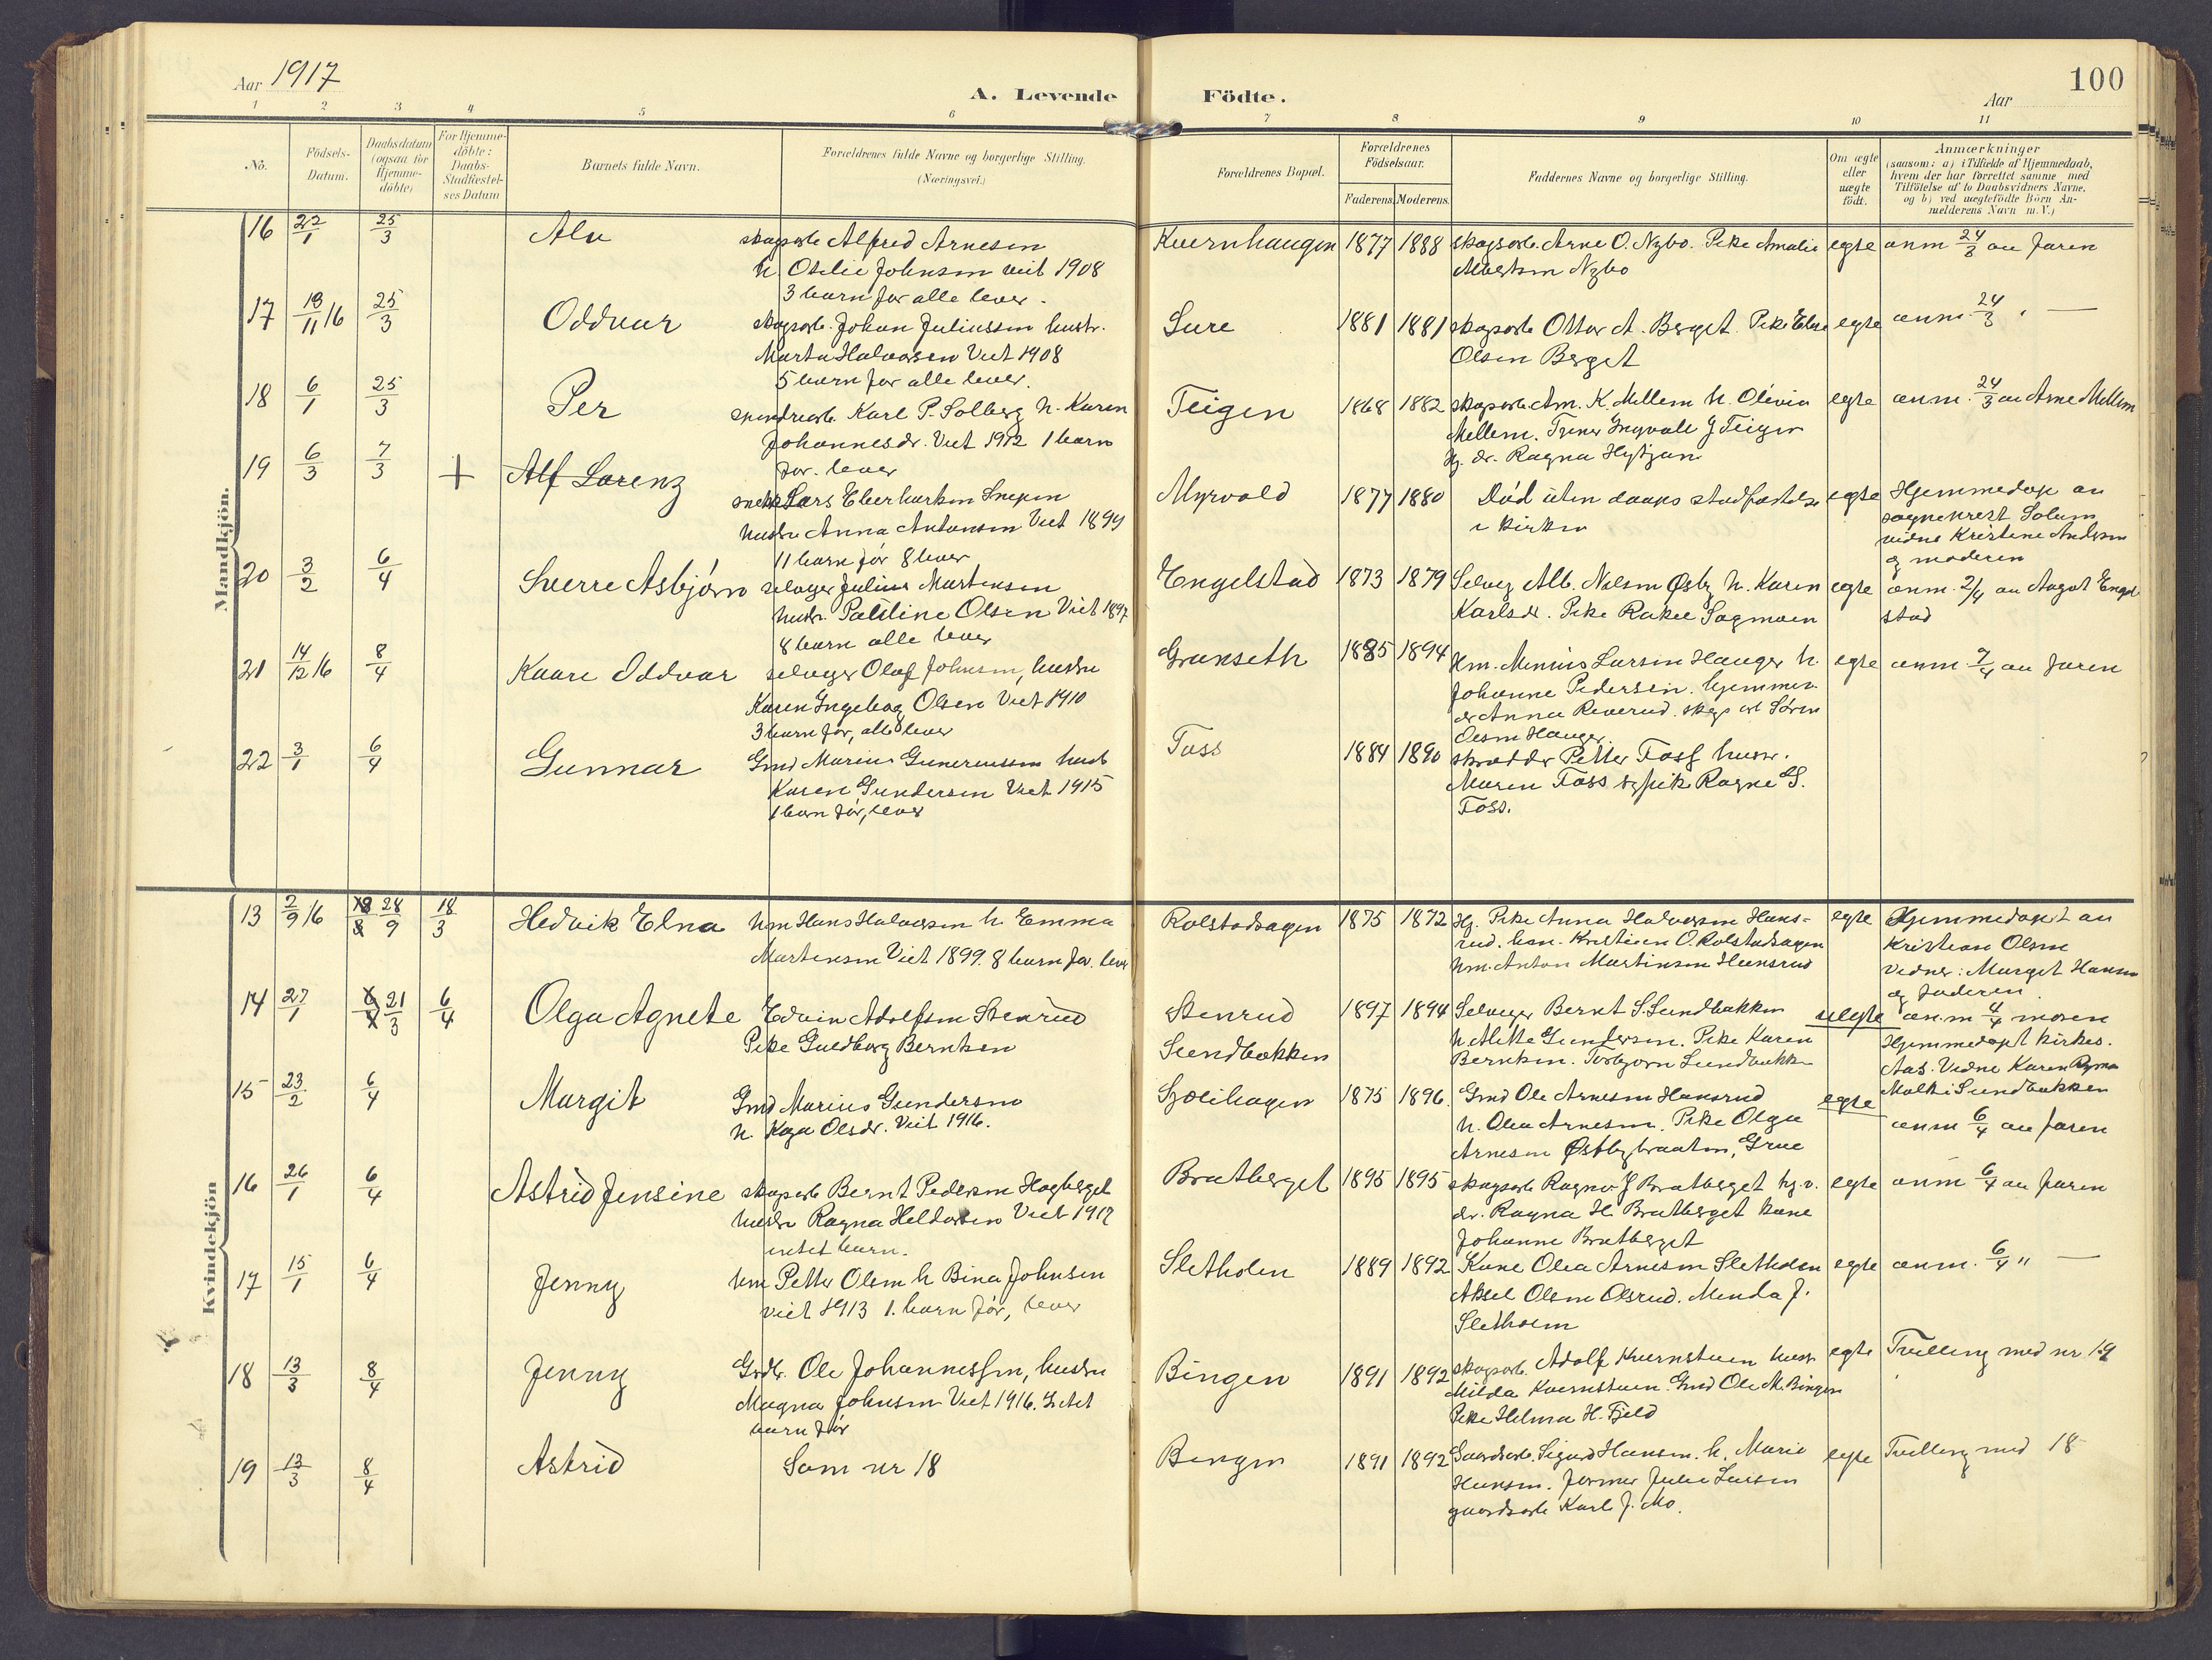 Aar 1917
A. Levende Födte.
Aar
100
1 2 3 4 5 6 7 8 9 10 11
No.
Födsels-
Datum.
Daabsdatum
(ogsaa for
Hjemme-
döbte)
For Hjemme-
döbte:
Daabs-
Stadfæstel-
ses Datum
Barnets fulde Navn.
Forældrenes fulde Navne og borgerlige Stilling.
(Næringsvei.)
Forældrenes Bopæl.
Forældrenes
Födselsaar.
Faderens. Moderens.
Faddernes Navne og borgerlige Stilling.
Om ægte
eller
uægte
født.
Anmærkninger
(saasom: a) i Tilfælde af Hjemmedaab,
hvem der har forrettet samme med
Tilföielse af to Daabsvidners Navne,
og b) ved uægtefödte Börn An-
melderens Navn m. V.)
Mandkjön.
16 22/1 25/3 Alv
skogsarb Alfred Arnesen
h. Otilie Johnsen viet 1908
3 barn før alle lever.
Kvernhaugen 1877 1888
skogsarb. Arne O. Nybo. Pike Amalie
Albertsen Nybo
egte anm 24/3 av faren
17 13/11 16 25/3 Oddvar
skogsarb. Johan Juliussen hustr.
Marta Halvorsen Viet 1908
5 barn før alle lever.
Sure 1881 1881
skogsarb Ottar A. Berget. Pike
Olsen Berget
egte anm 24/3 " —
18 6/1 25/3 Per
Karl P. Solberg h. Karen
Johannesdr. Viet 1912 1 barn
før. lever
Teigen 1868 1882
skogsarb Arn. K. Mellem h. Olivia
Mellem. Ingvald J Teigen
Hj. dr. Ragna
egte anm. 24/3 av Arne Mellem
19 6/3 7/3 + Alf Lorenz
Lars
hustru Anna Antonsen Viet 1899
11 barn før 8 lever
Myrvold 1877 1880
Død uten daaps stadfæstelse
i kirken
egte Hjemmedøpt av
sogneprest Solum
vidne Kristine Andersen
og moderen
20 3/2 6/4 Sverre Asbjørn
selveger Julius Martinsen
hustr. Palline Olsen Viet 1897
8 barn alle lever
Engelstad 1873 1879
Selveg Alb. Nelsen Østby h. Karen
Karlsdr. Pike Rakel Sagmoen
egte anm. 2/4 av Aagot Engel-
stad
21 14/12 16 8/4 Kaare Oddvar
selveger Olaf Johnsen, hustru
Karen Ingeborg Olsen Viet 1910
3 barn før, alle lever
Granseth 1885 1894
hm. Larsen Hauger h.
Johanne Pedersen. hjemmev.
dr Anna Reverud. skogs arb Søren
Olsen Hauger.
egte anm 7/4 av faren
22 3/1 6/4 Gunnar
Gmd Marius Gunerussen hust
Karen Gundersen Viet 1915
1 barn før, lever
Foss 1884 1890
skrædder Petter Foss hustr.
Maren Foss pike Ragne G.
Foss.
Kvindekjön
13 2/9 16 28/9 18/3 Hedvik Elna
hm Hans Halvorsen h. Emma
Martinsen Viet 1899. 8 barn før. lever
Rolstadsagen 1875 1872
Hj. Pike Anna Halvorsen Hans-
rud. hm. Kristian O. Rolstadsagen
hm. Anton Martinsen Hansrud
egte Hjemmedøpt av
Kristian Olsen
Vidner: Margit Hansen
og faderen
14 27/1 21/3 6/4 Olga Agnete
Edvin Adolfsen Stenrud
Pike Guldborg Berntsen
Stenrud
Sundbakken
1897 1894
Selveger Bernt S. Sundbakken
h Alette Gundersen. Pike Karen
Berntsen. Torbjørn Sundbakken
uegte anm 4/4 moren
Hjemmedøpt kirkes.
Aas. Vidne Karen
Sundbakken
15 23/2 6/4 Margit
Gmd Marius Gundersen
h. Kaja Olsdr. Viet 1916.
1875 1896
Gmd Ole Arnesen Hansrud
h. Olea Arnesen. Pike Olga
Arnesen Østbybraaten, Grue
egte anm 6/4 av faren
16 26/1 6/4 Astrid Jensine
skogsarb Bernt Pedersen Hogberget
hustru Ragna Heldorsen Viet 1912
intet barn.
Bratberget 1895 1895
skogsarb Ragnv. J Bratberget hj. v.
dr. Ragna H Bratberget kone
Johanne Bratberget
egte anm 6/4 av faren
17 15/1 6/4 Jenny
hm Petter Olsen h Bina Johnsen
viet 1913 1. barn før, lever
Sletholen 1889 1892
Kone Olea Arnesen Sletholen
Aksel Olsen Olsrud. Menda J.
Sletholen
egte anm. 6/4 " —
18 13/3 8/4 Jenny
Grdb. Ole Johannessen, hustru
Magna Johnsen Viet 1916. Intet
barn før
Bingen 1891 1892
skogsarb. Adolf Kvernstuen hustr
Milda Kvernstuen. Gmd Ole M. Bingen
Pike Helma H. Fjeld
egte Tvilling med nr 19
19 13/3 8/4 Astrid
Som nr 18
Bingen 1891 1892
Gaardsarb. Sigurd Hansen. h. Marie
Hansen. Julie Larsen
gaardsarb Karl J. Mo.
egte Tvilling med 18